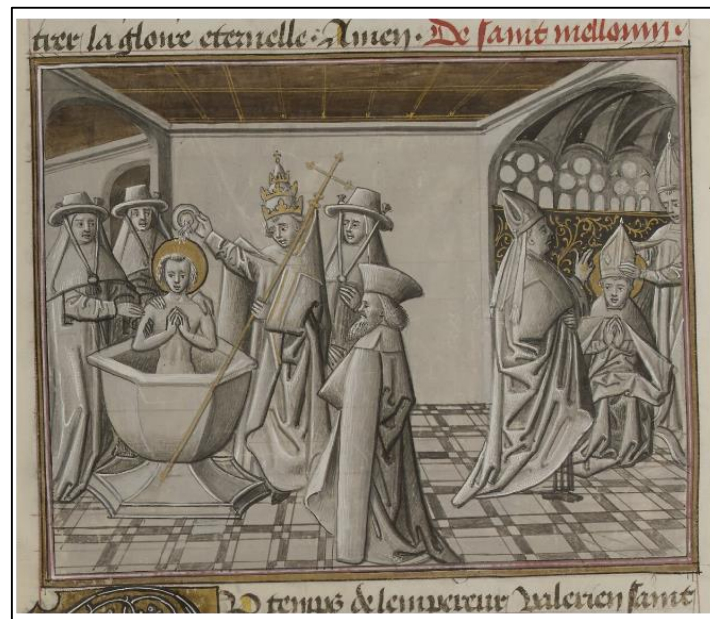 trer la gloire eternelle · Amen · De saint mellonin ·
U temps de lempereur valerien saint